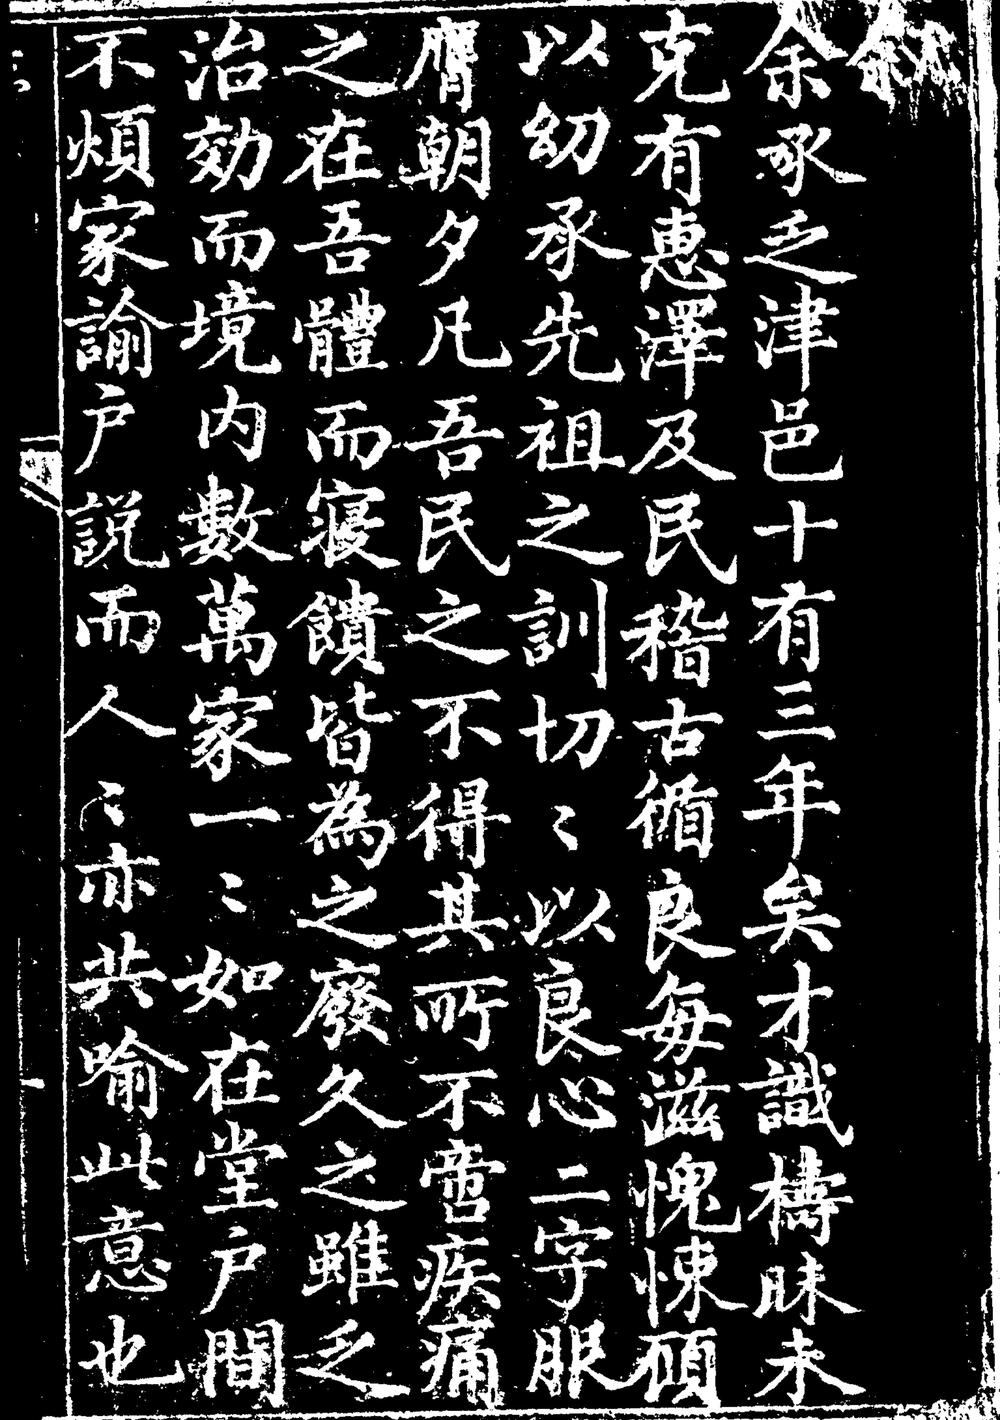 叙
余承乏津邑十有三年矣才識檮昧未
克有惠澤及民稽古循良每滋愧悚顧
以幼承先祖之訓切〻以良心二字服
膺朝夕凡吾民之不得其所不啻疾痛
之在吾體而寝饋皆為之廢久之雖乏
治効而境内數萬家一〻如在堂戸間
不煩家諭戸説而人〻亦共喻此意也